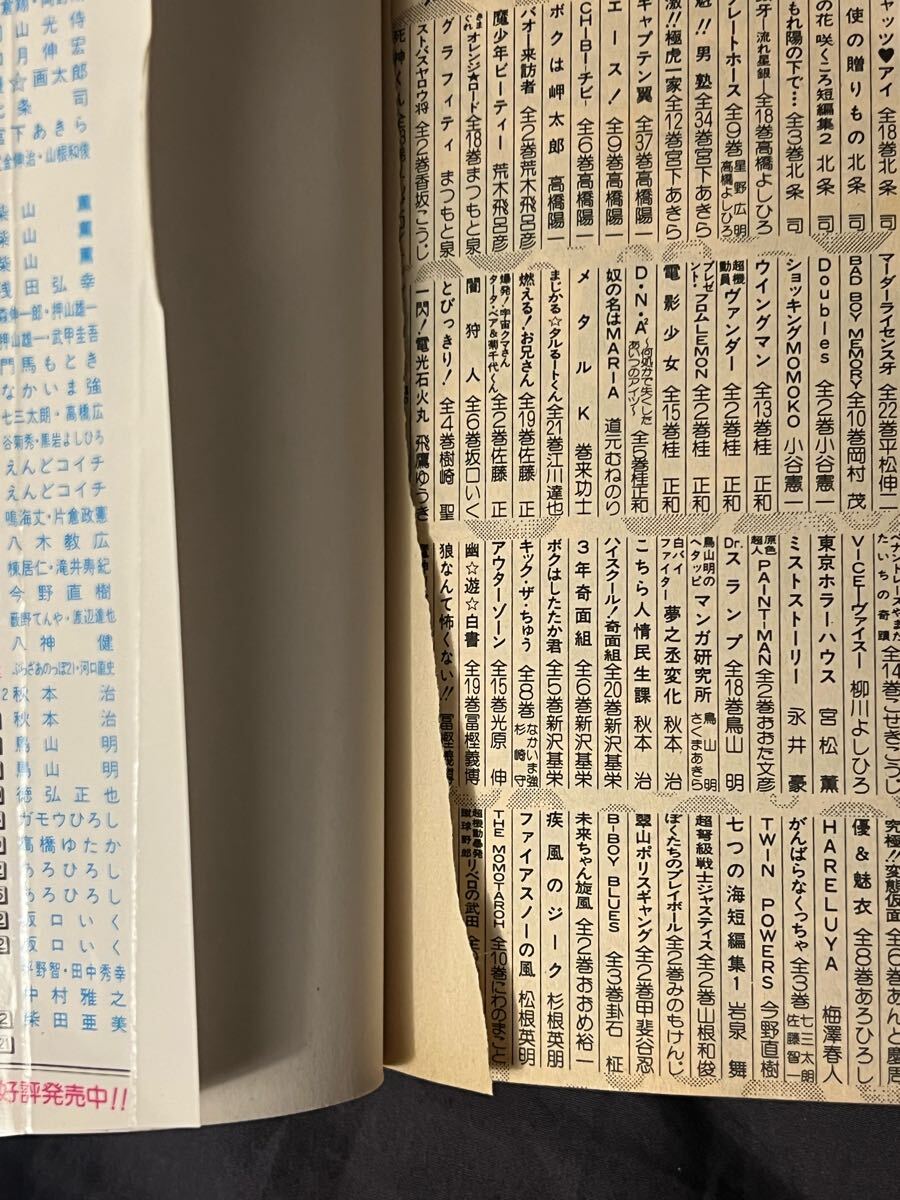 山光侍
月伸宏
☆画太郎
条司
宮下あきら
山根和俊
柴山薫
柴山薫
柴山薫
浅田弘幸
森伸一郎・押山雄一
押山雄一・武甲圭吾
門馬もとき
なかいま強
七三太朗・高橋広
谷菊秀・黒岩よしひろ
えんどコイチ
えんどコイチ
鳴海丈・片倉政憲
八木教広
棟居仁・滝井寿紀
今野直樹
藪野てんや・渡辺達也
八神健
ぷらざあのっぽ21・河口直史
秋本治
秋本治
鳥山明
鳥山明
徳弘正也
ガモウひろし
高橋ゆたか
あろひろし
あろひろし
坂口いく
坂口いく
平野智・田中秀幸
中村雅之
柴田亜美
好評発売中!!
ャッツ♥アイ 全18巻 北条司
使の贈りもの 北条司
の花咲くころ短編集2 北条司
もれ陽の下で… 全3巻 北条司
牙―流れ星銀― 全18巻 高橋よしひろ
レートホース 全9巻 星野広明 高橋よしひろ
魁!!男塾 全34巻 宮下あきら
激!!極虎一家 全12巻 宮下あきら
キャプテン翼 全37巻 高橋陽一
エース! 全9巻 高橋陽一
CHIBI―チビ― 全6巻 高橋陽一
ボクは岬太郎 高橋陽一
バオー来訪者 全2巻 荒木飛呂彦
魔少年ビーティー 荒木飛呂彦
きまぐれオレンジ★ロード 全18巻 まつもと泉
グラフィティ まつもと泉
ストパスヤロウ将 全2巻 香坂こうじ
死神くん
マーダーライセンス牙 全22巻 平松伸二
BAD BOY MEMORY 全10巻 岡村茂
Doubles 全2巻 小谷憲一
ショッキングMOMOKO 小谷憲一
ウイングマン 全13巻 桂正和
超機動員ヴァンダー 全2巻 桂正和
プレゼント・フロムLEMON 全2巻 桂正和
電影少女 全15巻 桂正和
D・N・A² ～何処かで失くしたあいつのアイツ～ 全5巻 桂正和
奴の名はMARIA 道元むねのり
メタルK 巻来功士
まじかる☆タルるートくん 全21巻 江川達也
燃える!お兄さん 全19巻 佐藤正
爆発!宇宙クマさんタータ・ベア&菊千代くん 全2巻 佐藤正
闇狩人 全6巻 坂口いく
とびっきり! 全4巻 樹崎聖
一閃!電光石火丸 飛鷹ゆうき
ペナントレースやまだたいちの奇蹟 全14巻 こせきこうじ
VICE―ヴァイス― 柳川よしひろ
東京ホラーハウス 宮松薫
ミストストーリー 永井豪
原色超人PAINTMAN 全2巻 おおた文彦
Dr.スランプ 全18巻 鳥山明
鳥山明のヘタッピマンガ研究所 鳥山明 さくまあきら
白バイファイター夢之丞変化 秋本治
こちら人情民生課 秋本治
ハイスクール!奇面組 全20巻 新沢基栄
3年奇面組 全6巻 新沢基栄
ボクはしたたか君 全5巻 新沢基栄
キック・ザ・ちゅう 全8巻 なかいま強 杉崎守
アウターゾーン 全15巻 光原伸
幽☆遊☆白書 全19巻 冨樫義博
狼なんて怖くない!! 冨樫義博
究極!!変態仮面 全6巻 あんど慶周
優&魅衣 全8巻 あろひろし
HARELUYA 梅澤春人
がんばらなくっちゃ 全3巻 七三太朗 佐藤智一
TWIN POWERS 今野直樹
七つの海短編集1 岩泉舞
超弩級戦士ジャスティス 全2巻 山根和俊
ぼくたちのプレイボール 全2巻 みのもけんじ
翠山ポリスギャング 全2巻 甲斐谷忍
B-BOY BLUES 全3巻 卦石柾
未来ちゃん旋風 全2巻 おおめ裕一
疾風のジーク 杉根英朋
ファイアスノーの風 松根英明
THE MOMOTAROH 全10巻 にわのまこと
超機動暴発蹴球野郎リベロの武田 全